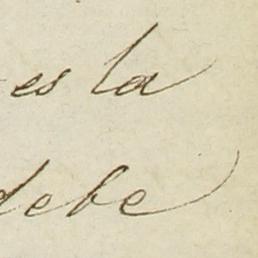 es la
debe